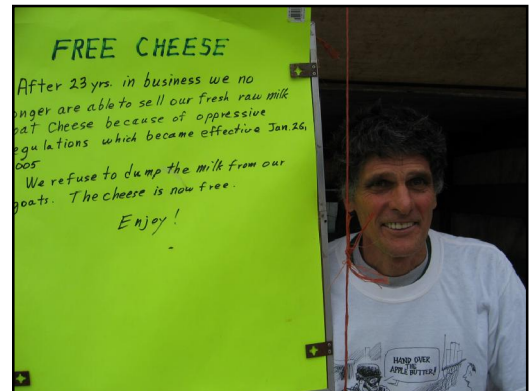 FREE CHEESE
After 23 yrs. in business we no
onger are able to sell our fresh raw milk
oat Cheese because of oppressive
egulations which became effective Jan. 26,
005
We refuse to dump the milk from our
goats. The cheese is now free.
Enjoy!
HAND OVER
THE
APPLE BUTTER!